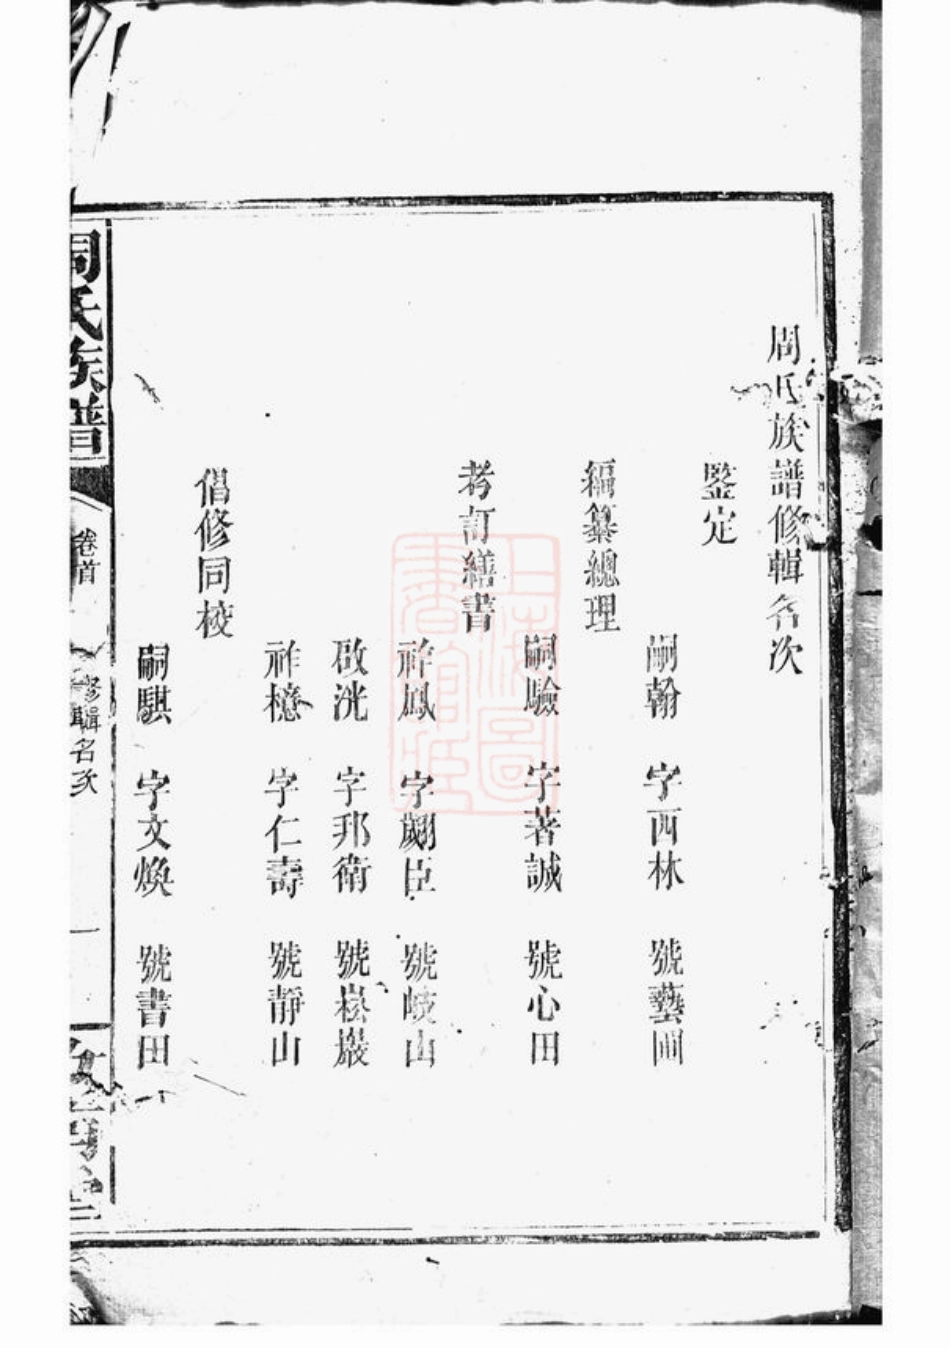 周氏族譜修輯名次
鑒定
嗣翰 字西林 號藝圃
編纂總理
嗣驗 字著誠 號心田
考訂繕書
祚鳳 字翽臣 號岐山
啟洸 字邦衛 號崧巖
祚檍 字仁壽 號靜山
倡修同校
嗣騏 字文煥 號書田
周氏族譜
卷首
修輯名次
一
上海圖書館藏